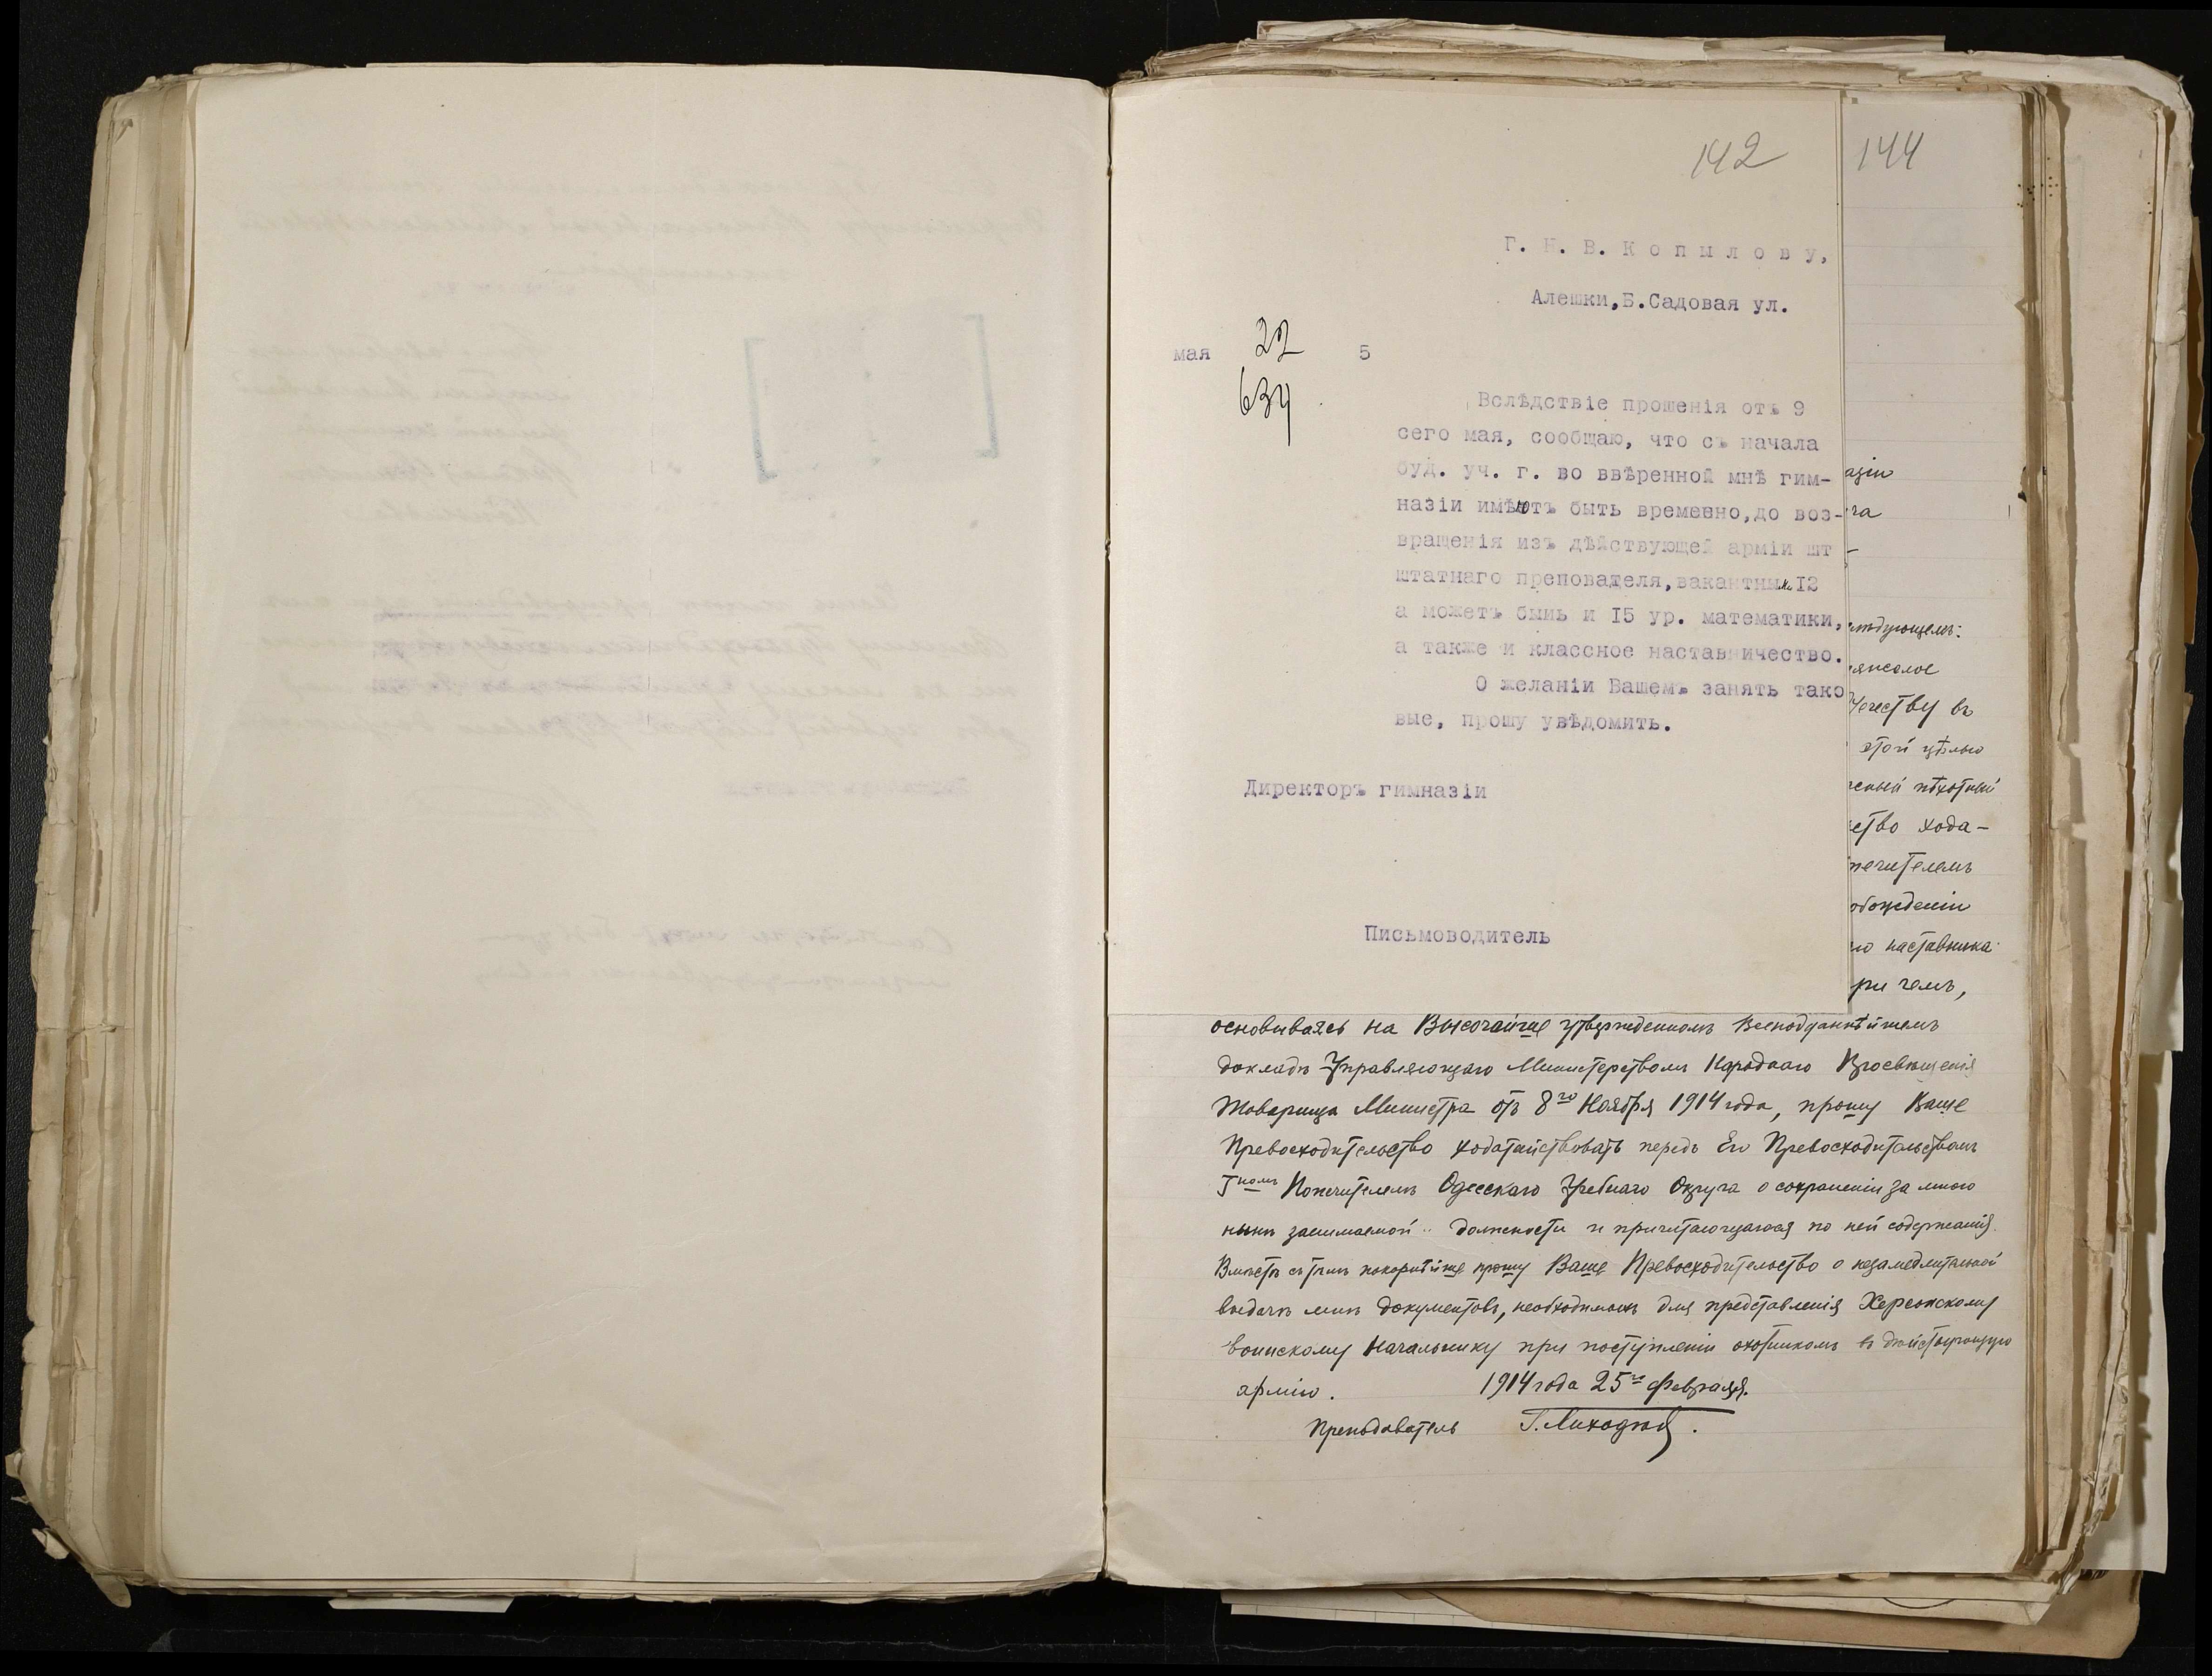 142
144
Г. Н. В. Копылову,
Алешки,Б.Садовая ул.
мая 22 5
634
Вслѣдствіе прошенія отъ 9
сего мая, сообщаю, что съ начала
буд. уч. г. во ввѣренной мнѣ гим-
назіи имѣютъ быть времевно,до воз-
вращенія изъ дѣйствующей арміи шт
штатнаго препователя,вакантны 12
а можетъ быиь и 15 ур. математики,
а также и классное наставничество.
О желаніи Вашемъ занять тако
вые, прошу увѣдомить.
Директоръ гимназіи
Письмоводитель
азіи
га
ѣдующемъ:
яжелое
Отечеству въ
этой цѣлью
пѣхотный
ство хода-
печителемъ
обожденіи
го наставника
при чемъ,
основываясь на Высочайше утвержденномъ Всеподданнѣйшемъ
докладѣ Управляющаго Министерствомъ Народнаго Просвѣщенія
Товарища Министра отъ 8го Ноября 1914 года, прошу Ваше
Превосходительство ходатайствовать передъ Его Превосходительствомъ
Гномъ Попечителемъ Одесскаго Учебнаго Округа о сохраненіи за мною
нынѣ занимаемой должности и причитающагося по ней содержанія.
Вмѣстѣ съ тѣмъ покорнѣйше прошу Ваше Превосходительство о незамедлительной
выдачѣ мнѣ документовъ, необходимыхъ для представленія Херсонскому
воинскому Начальнику при поступленіи охотникомъ въ дѣйствующую
армію. 1914 года 25го Февраля.
Преподаватель Г. Лиходѣй.